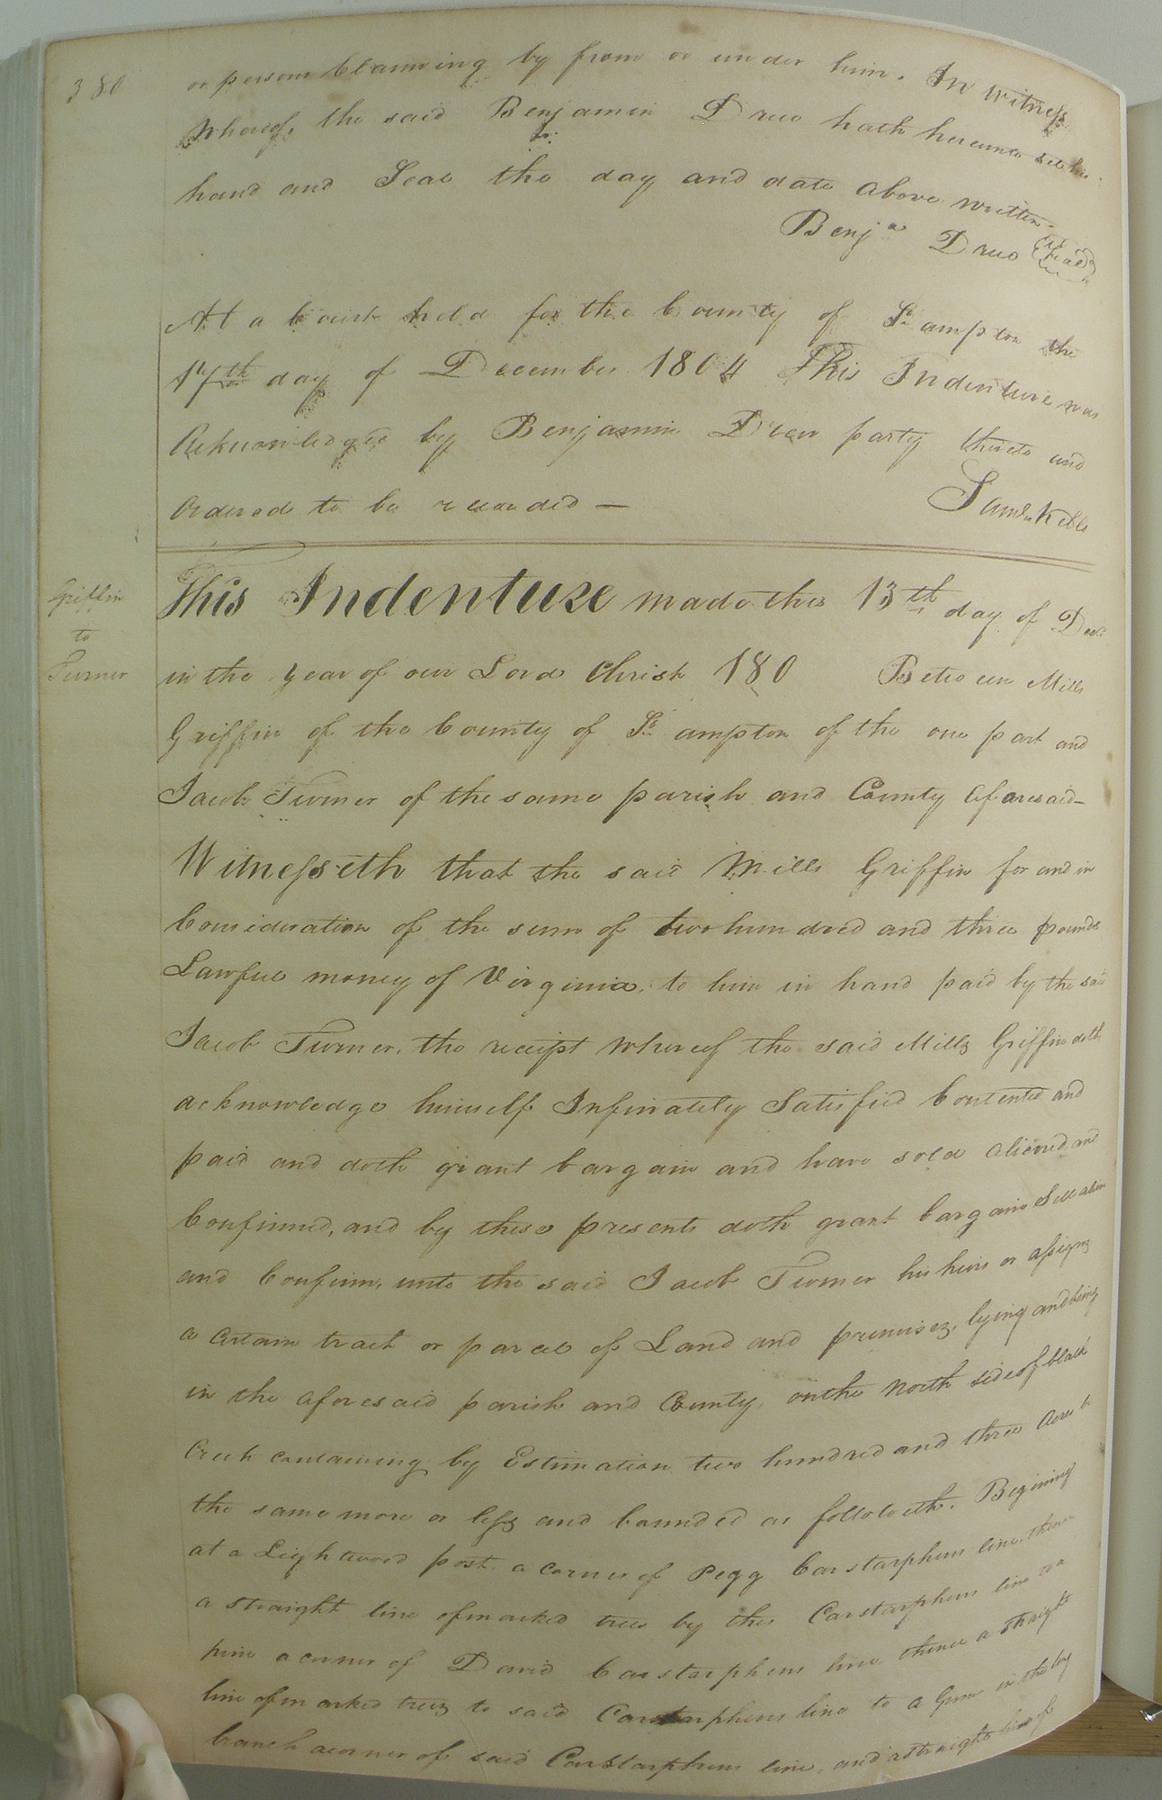 380
or persons Claiming by from or under him. In Witness
Whereof, the said Benjamin Drew hath hereunto set his
hand and Seal the day and date above written.
Benj.a Drew (Seal)
At a Court held for the County of So ampton the
17th day of December 1804 This Indenture was
Acknowledged by Benjamin Drew party thereto and
Ordered to be recorded —
Saml. Kello
Griffin
to
Turner
This Indenture made this 13th day of Decr.
in the year of our Lord Christ 180 Between Mills
Griffin of the County of So ampton of the one part and
Jacob Turner of the same parish and County Aforesaid—
Witnesseth that the said Mills Griffin for and in
Consideration of the sum of two hundred and three pounds
Lawful money of Virginia, to him in hand paid by the said
Jacob Turner, the receipt whereof the said Mills Griffin doth
acknowledge himself Infinately Satisfied Contented and
paid and doth grant bargain and have sold aliened and
Confirmed, and by these presents doth grant bargain Sell alien
and Confirm, unto the said Jacob Turner his heirs or assigns
a certain tract or parcel of Land and premises, lying and being
in the aforesaid parish and County, on the North side of black
Creek containing by Estimation two hundred and three Acres be
the same more or less and bounded as followeth. Begining
at a Lightwood post a corner of Pegg Carstarphens line, thence
a straight line of marked trees by the Carstarphens line to a
pine a corner of David Carstarphens line thence a straight
line of marked trees to said Carstarphens line to a Gum in the
branch a corner of said Carstarphens line, and a straight line of